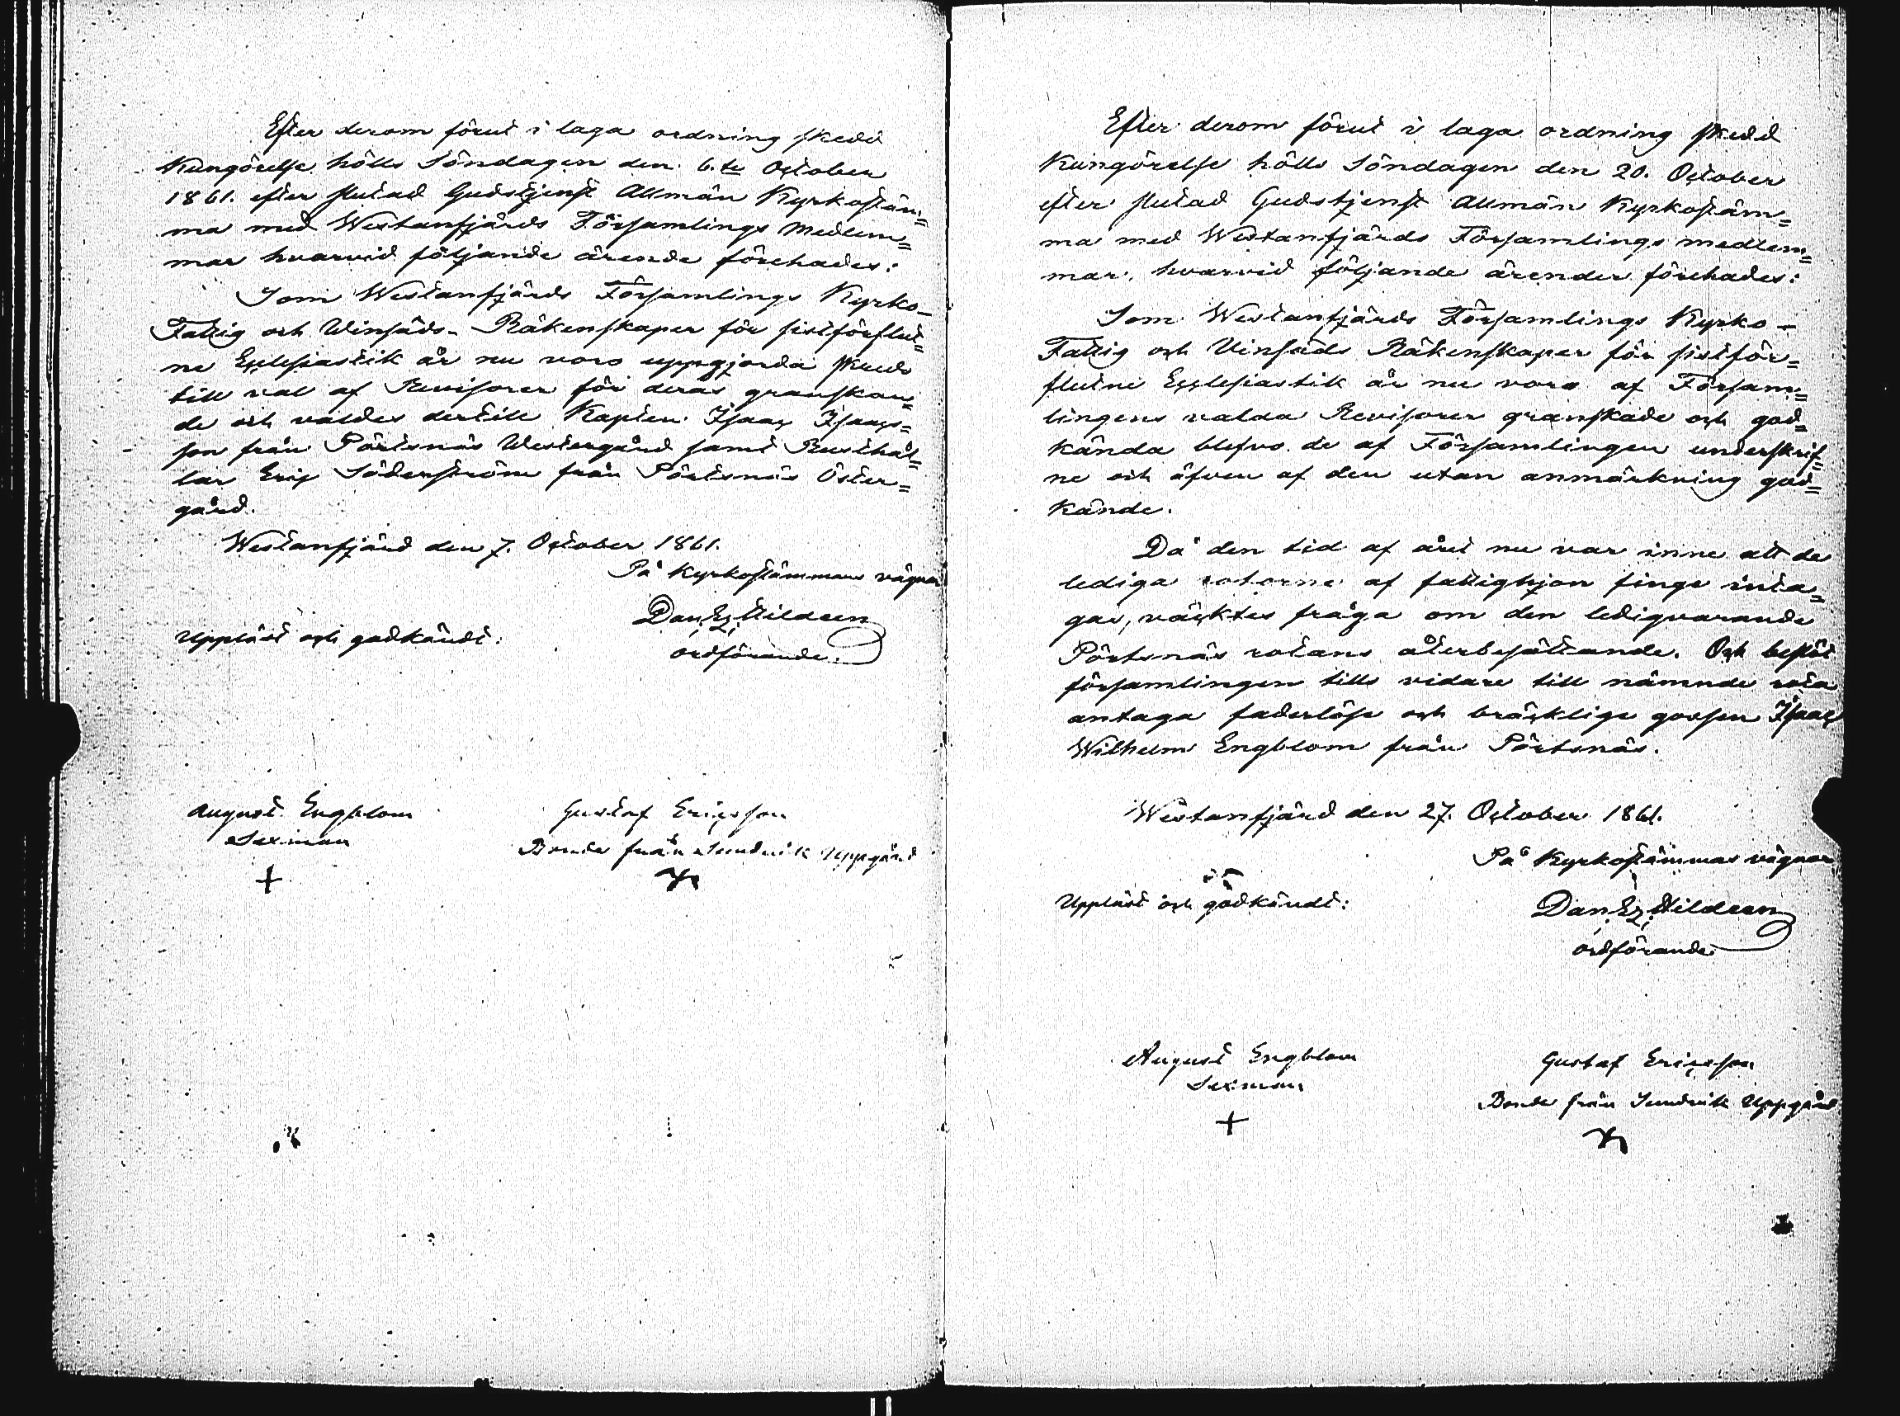 Efter derom förut i laga ordning skedd
Kungörelse hölls Söndagen den 6.te October
1861. efter slutad Gudstjenst Allmän Kyrkostäm=
ma med Westanfjärds Församlings Medlem=
mar hvarvid följande ärende förehades:
Som Westanfjärds Församlings Kyrko-
Fattig och Vinsäds- Räkenskaper för sistförflut=
ne Ecclesiastik år nu voro uppgjorda skreds
till val af Revisorer för deras granskan=
de och valdes dertill Kapten Isaac Isaacs=
son från Pörtsnäs Westergård samt Rusthål=
lar Eric Söderström från Pörtsnäs Öster=
gård.
Westanfjärd den 7. October 1861.
På Kyrkostämmans vägnar
Dan. Ez. Hildeen
ordförande.
Uppläst och godkändt:
August Engblom
Sexman
+
Gustaf Ericsson
Bonde från Sundvik Uppgård
Efter derom förut i laga ordning skedd
Kungörelse hölls Söndagen den 20. October
efter slutad Gudstjenst Allmän Kyrkostäm=
ma med Westanfjärds Församlings medlem=
mar, hvarvid följande ärender förehades:
Som Westanfjärds Församlings Kyrko-
Fattig och Vinsäds Räkenskaper för sistför=
flutne Ecclesiastik år nu voro af Försam=
lingens valda Revisorer granskade och god=
kända blefvo de af Församlingen underskrif=
ne och äfven af den utan anmärkning god=
kände.
Då den tid af året nu var inne att de
lediga rotorne af fattighjon finge inta=
gas, väcktes fråga om den ledigvarande
Pörtsnäs rotans återbesättande. Och beslöt
församlingen tills vidare till nämnde rota
antaga faderlöse och bräcklige gossen Isaac
Wilhelm Engblom från Pörtsnäs.
Westanfjärd den 27. October 1861.
På Kyrkostämmas vägnar
Uppläst och godkändt:
Dan. Ez. Hildeen
ordförande
August Engblom
Sexman
+
Gustaf Ericsson
Bonde från Sundvik Uppgård